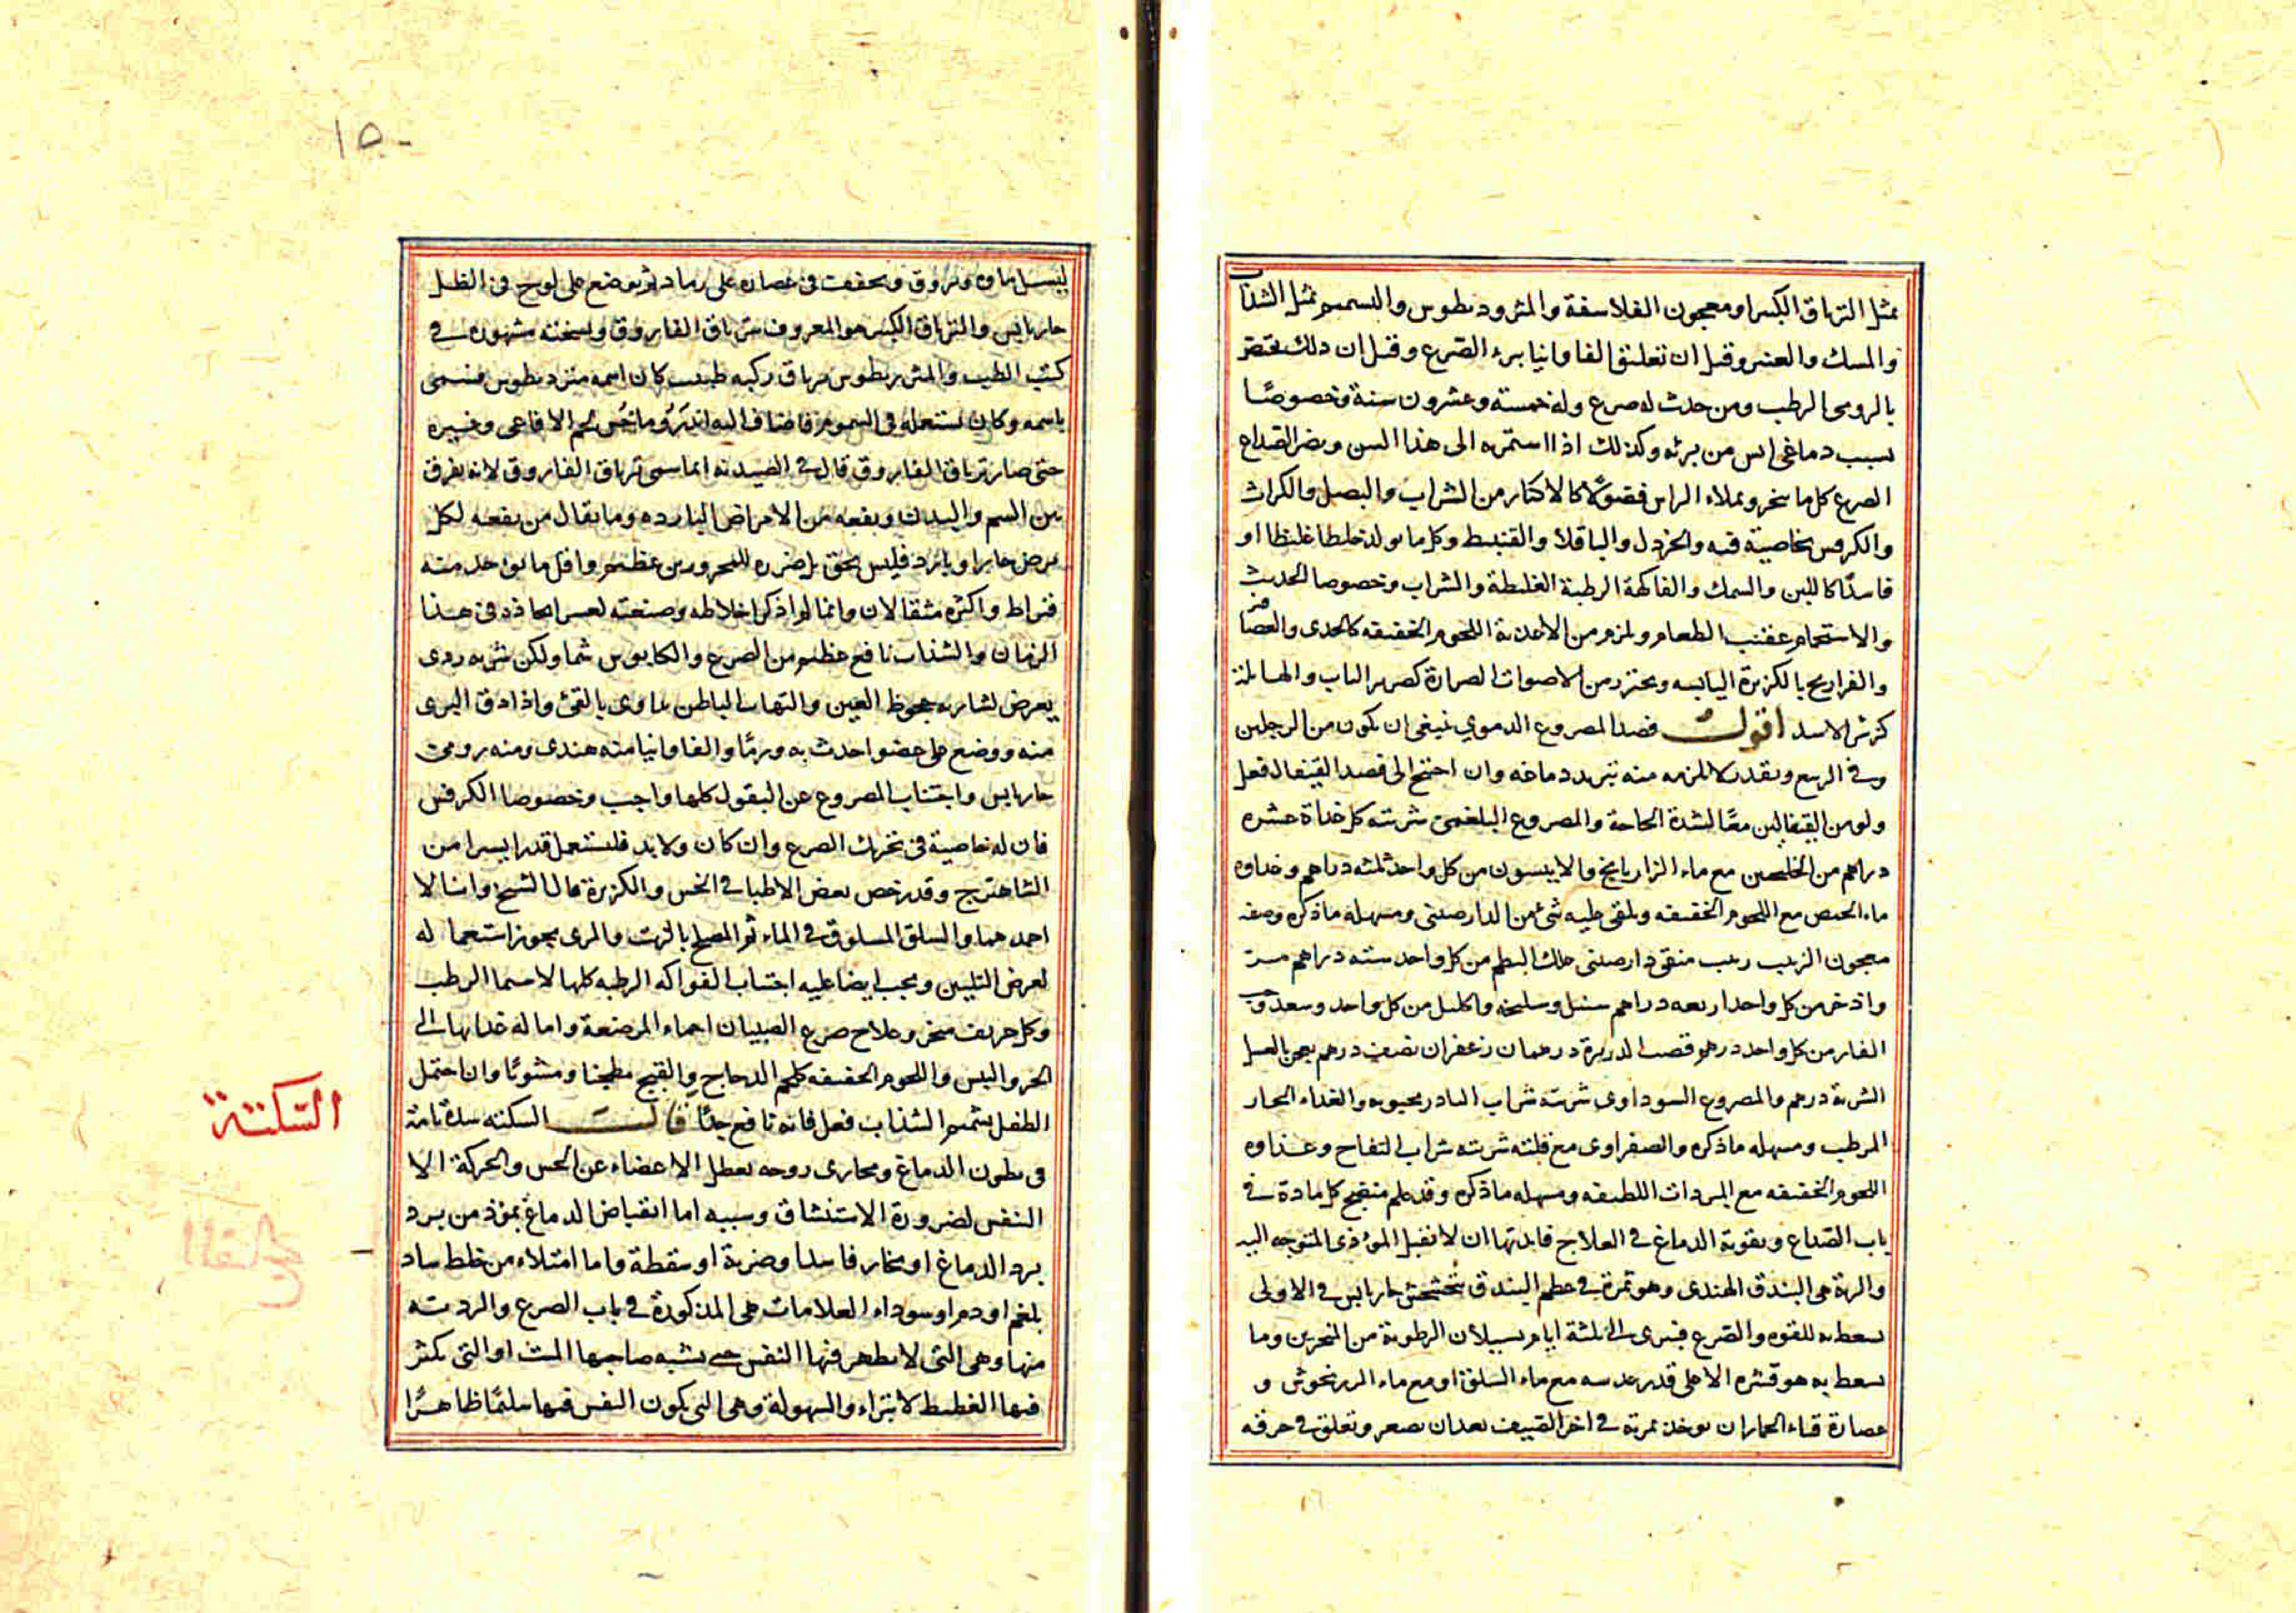 مثل الترياق الكبير او معجون الفلاسفة والمثروديطوس والتسميم مثل الشذاب
والمسك والعنبر وقيل ان تعليق الفاوانيا يبرء الصرع وقيل ان ذلك مختص
بالرومي الرطب ومن حدث له صرع وله خمسة وعشرون سنة وخصوصًا
بسبب دماغي ايس من برئه وكذلك اذا استمر به الى هذا السن ويضر الصداع
الصرع كل ما يبخر ويملاء الراس فضولًا كالاكثار من الشراب والبصل والكراث
والكرفس بخاصية فيه والخردل والباقلا والقنبيط وكل ما يولد خلطا غليظا او
فاسدًا كاللبن والسمك والفاكهة الرطبة الغليظة والشراب وخصوصا الحديث
والاستحمام عقيب الطعام ويلزم من الاغذية اللحوم الخفيفه كالجدى والعصافير
والفراريج بالكزبرة اليابسه ويحترز من الاصوات الصرارة كصرير الباب والهايلة
كزئير الاسد اقول فصد المصروع الدموي ينبغى ان يكون من الرجلين
وفى الربيع وبقدر لا يلزمه منه تبريد دماغه وان احتيج الى فصد القيفال فعل
ولو من القيفالين معًا لشدة الحاجة والمصروع البلغمى شربته كل غداة عشره
دراهم من الخلنجبين مع ماء الرازيانج والانيسون من كل واحد ثلثه دراهم وغداوه
ماء الحمص مع اللحوم الخفيفه ويلقى عليه شئ من الدارصينى ومسهله ما ذكره وصفه
معجون الزبيب زبيب منقى دارصينى علك البطم من كل واحد سته دراهم مر
واذخر من كل واحد اربعه دراهم سنبل وسليخه واكليل من كل واحد وسعد وحب
الغار من كل واحد درهم قصب الذريرة درهمان زعفران نصف درهم يعجن بالعسل
الشربة درهم والمصروع السوداوى شربته شراب البادرنجبويه والغداء الحار
المرطب ومسهله ما ذكره والصفراوى مع قلته شربته شراب التفاح وغذاوه
اللحوم الخفيفه مع المبردات اللطيفه ومسهله ما ذكره وقد علم منضج كل مادة فى
باب الصداع وتقوية الدماغ فى العلاج فايدتها ان لا يقبل المؤذى المتوجه اليه
والرتة هى البندق الهندى وهو ثمرة فى عظم البندق يتخشخش حار يابس فى الاولى
يسعط به للقوه والصرع فيبرى الى ثلثة ايام بسيلان الرطوبة من المنخرين وما
يسعط به هو قشره الاعلى قدر عدسه مع ماء السلق او مع ماء المرزنجوش و
عصارة قثاء الحمار ان يوخذ ثمرته فى اخر الصيف بعد ان يصفر وتعلق فى خرقه
١٥٠
ليسيل ماوه ويروق ويجففت فى عصاره على رماد ثم يوضع على لوح فى الظل
حار يابس والترياق الكبير هو المعروف بترياق الفاروق ونسخته مشهوره فى
كتب الطب والمثريديطوس ترياق ركبه طبيب كان اسمه مثرديطوس فسمى
باسمه وكان يستعمله فى السموم فاضاف اليه اندروماخس لحم الافاعى وغيره
حتى صار ترياق الفاروق قال فى الصيدنه انما سمى ترياق الفاروق لانه يفرق
بين السم والبدن وينفعه من الامراض البارده وما يقال من نفعه لكل
مرض حار او بارد فليس بحق بل ضرره للمحرورين عظيم واقل ما يؤخذ منه
قيراط واكثره مثقالان وانما لم اذكر اخلاطه وصنعته لعسر اتخاذه فى هذا
الزمان والشذاب نافع عظيم من الصرع والكابوس شما ولكن شربه ردى
يعرض لشاربه جحوظ العين والتهاب الباطن يداوى بالقئ واذا دق البرى
منه ووضع على عضو احدث به ورمًا والفاوانيا منه هندى ومنه رومى
حار يابس واجتناب المصروع عن البقول كلها واجب وخصوصا الكرفس
فان له خاصية فى تحريك الصرع وان كان ولا بد فليستعمل قدرا يسيرا من
الشاهترج وقد رخص بعض الاطبا فى الخس والكزبرة قال الشيخ وانا لا
احمدهما والسلق المسلوق فى الماء ثم المصلح بالزيت والمرى يجوز استعماله
لغرض التليين ويجب ايضا عليه اجتناب الفواكه الرطبه كلها لا سيما الرطب
وكل حريف مبخر وعلاج صرع الصبيان احماء المرضعة وامالة غذايها الى
الحر واليبس واللحوم الخفيفه كلحم الدجاج والقبج مطجنا ومشويًا وان احتمل
الطفل بشميم الشذاب فعل فانه نافع جدًا قال السكته سدة تامة
فى بطون الدماغ ومجارى روحه يعطل الاعضاء عن الحس والحركة الا
النفس لضرورة الاستنشاق وسببه اما انقباض الدماغ بمؤذ من برد
برد الدماغ او بخار فاسد او ضربة او سقطة واما امتلاء من خلط ساد
بلغم او دم او سوداء العلامات هى المذكورة فى باب الصرع والرديئه
منها وهى التى لا يظهر فيها النفس حتى يشبه صاحبها الميت او التى يكثر
فيها الغطيط لا تبراء والسهولة وهى التى يكون النفس فيها سليمًا ظاهرًا
السّكتة